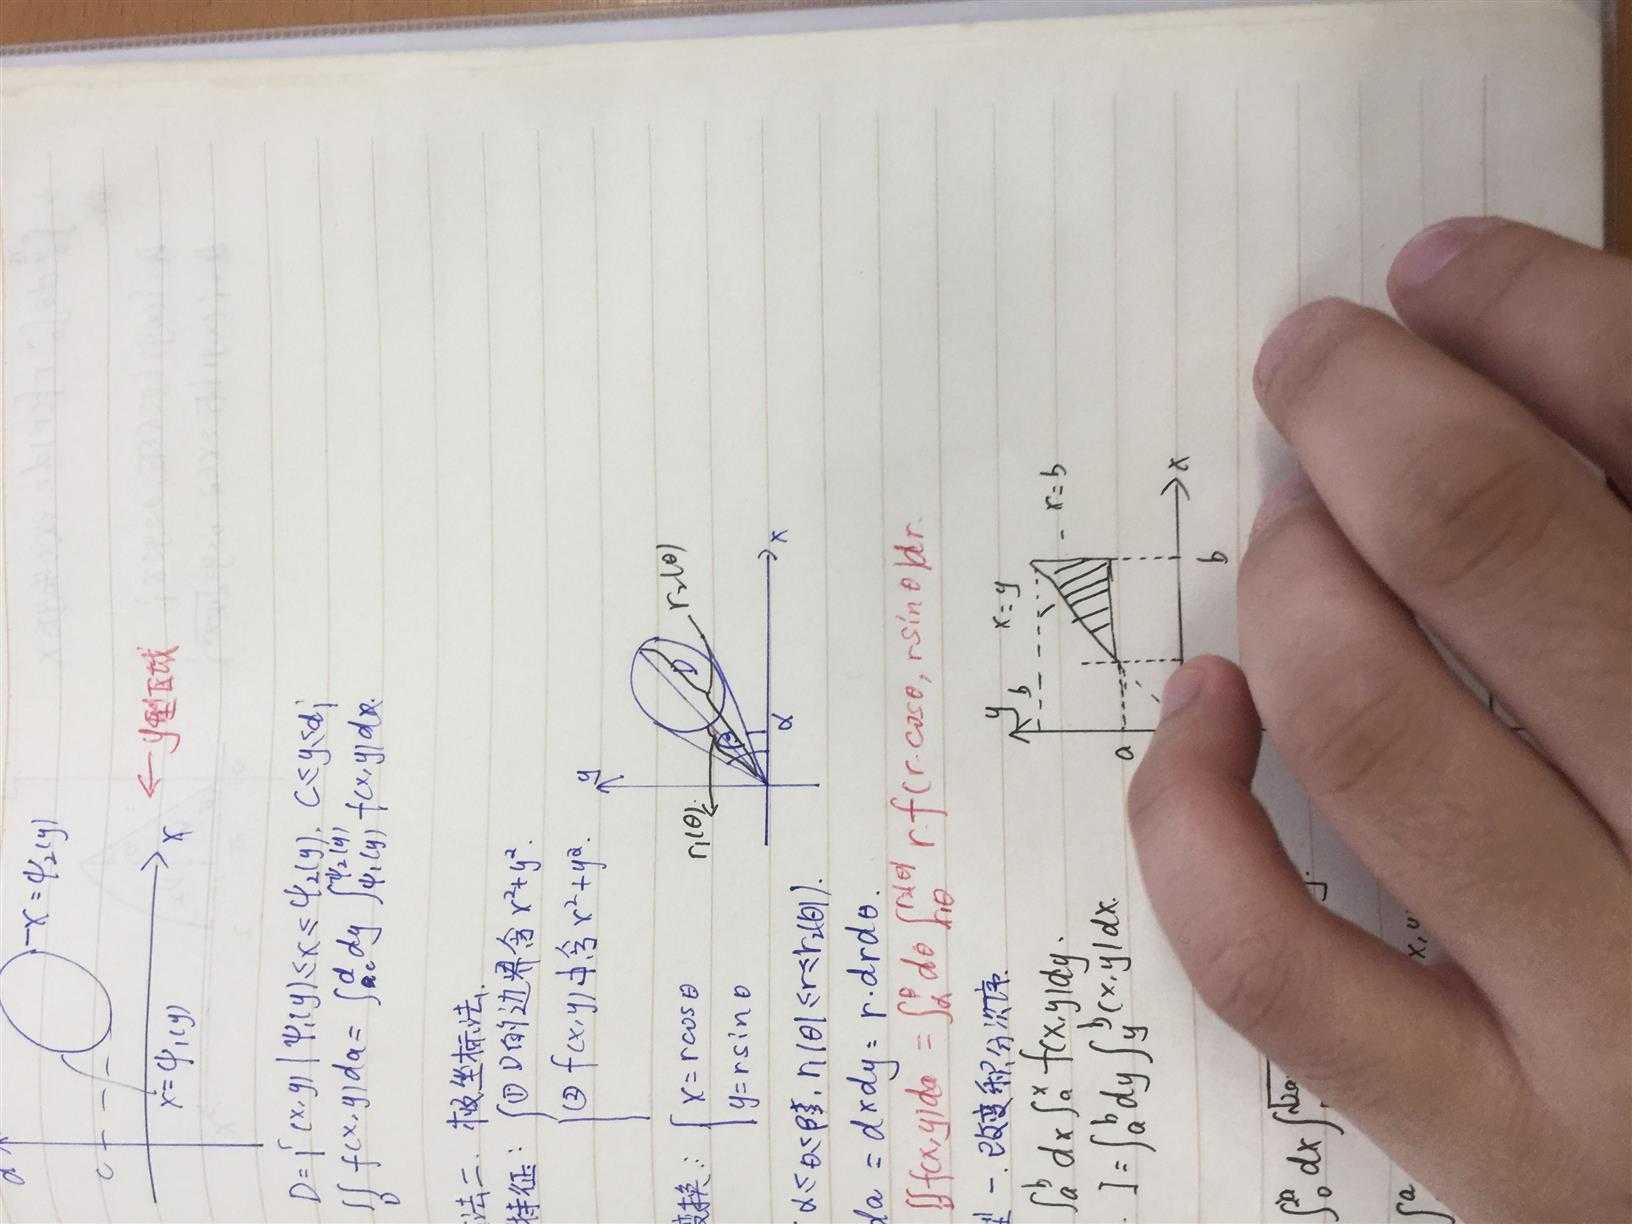 d
x=ψ₂(y)
c
x
x=ψ₁(y)
← y型区域
D={(x,y)|ψ₁(y)≤x≤ψ₂(y), c≤y≤d}
∬_D f(x,y)da = ∫_c^d dy ∫_{ψ₁(y)}^{ψ₂(y)} f(x,y)dx.
法二. 极坐标法.
特征: { ① D的边界含x²+y².
② f(x,y)中含x²+y².
y
r₁(θ).
D
r₂(θ)
β
α
x
变换: { x=rcosθ
y=rsinθ
α≤θ≤β, r₁(θ)≤r≤r₂(θ).
da = dxdy = r·drdθ.
∬f(x,y)da = ∫_α^β dθ ∫_{r₁θ}^{r₂θ} r·f(r·cosθ, rsinθ)dr.
型一. 改变积分次序.
∫_a^b dx ∫_a^x f(x,y)dy.
I = ∫_a^b dy ∫_y^b f(x,y)dx.
y
b
x=y
x=b
a
b
x
∫_0 dx ∫
∫ a